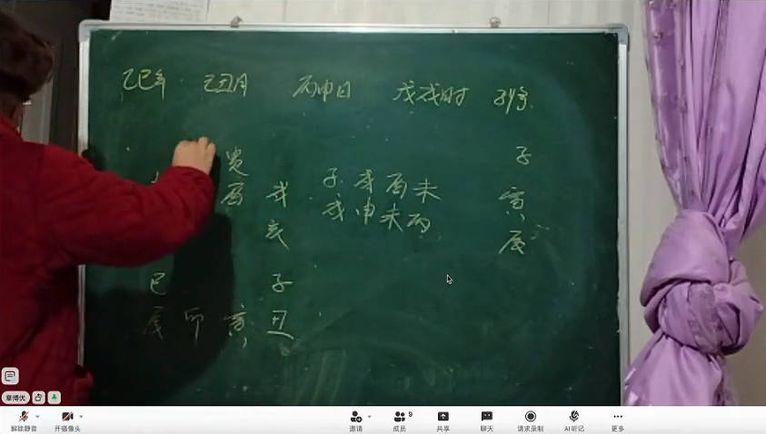 乙巳年 己丑月 丙申日 戊戌时 子将
子
贵
酉 戌 子戌酉未 寅
亥 戌申未丙 辰
巳 子
辰 卯 寅 丑
解除静音 开摄像头 邀请 成员 9 共享 聊天 请求录制 AI听记 更多